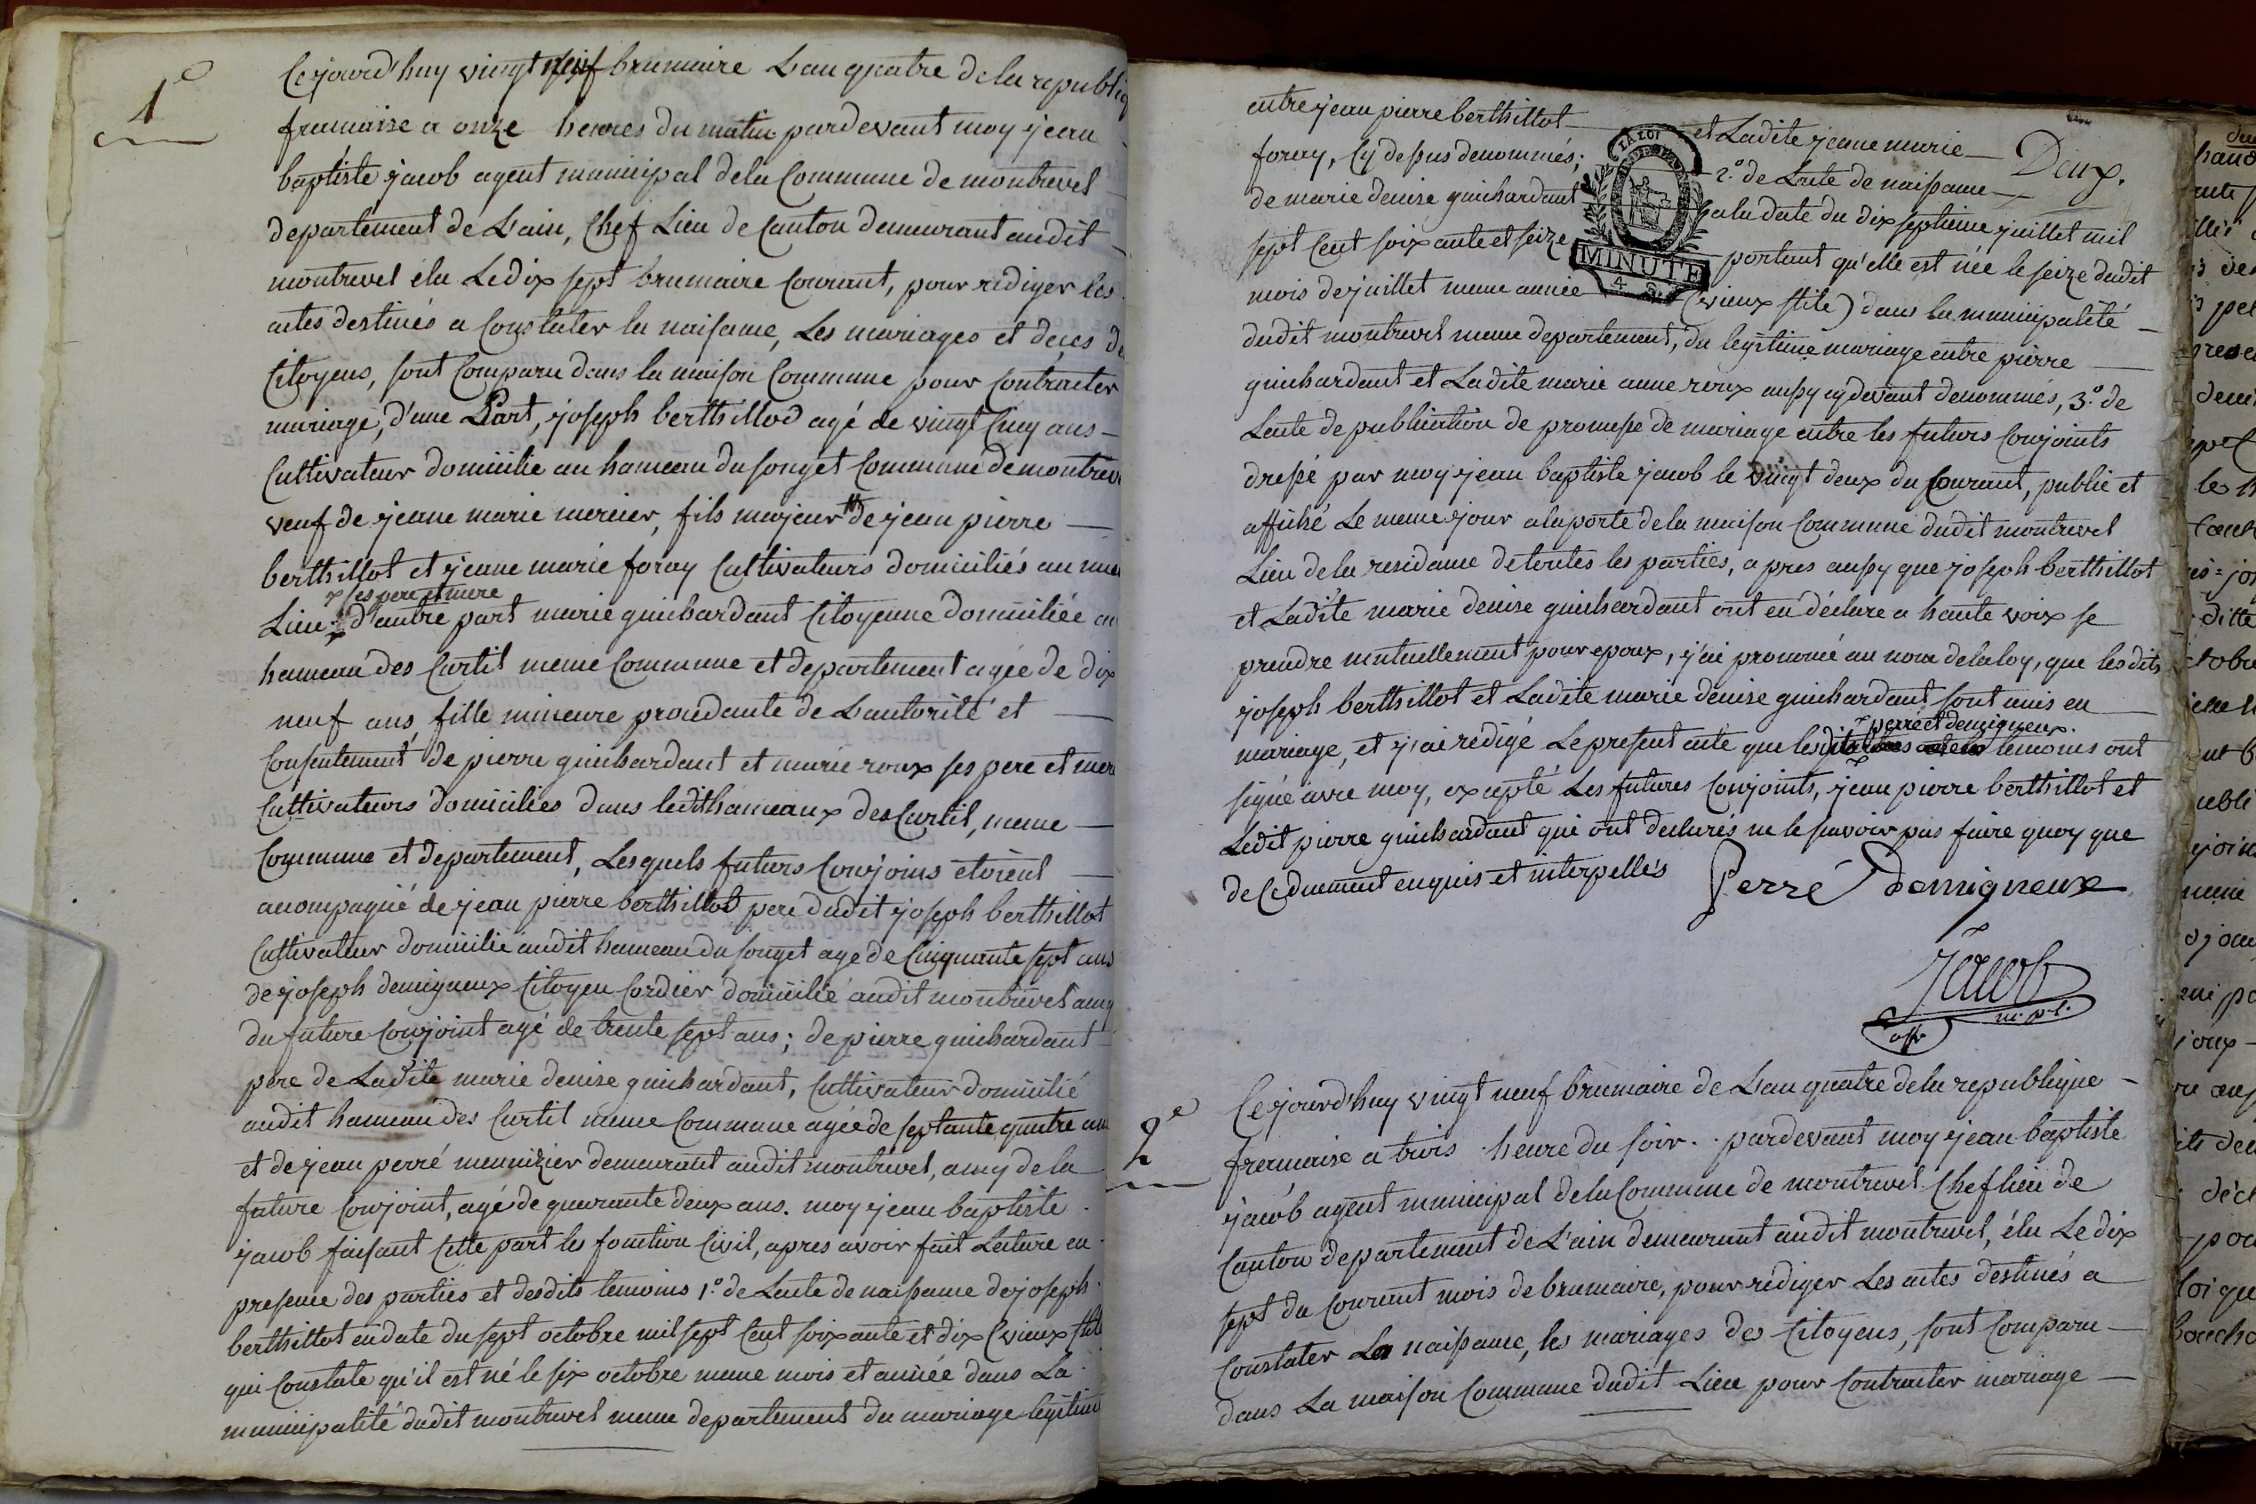 1e
Cejourd'huy vingt neuf brumaire L'an quatre de la republiq
francaise a onze heures du matin pardevant moy jean
baptiste jacob agent municipal dela Commune de montrevel
departement de L'ain, Chef Lieu de Canton demeurant audit
montrevel élu Le dix sept brumaire Courant, pour rediger les
actes destinés a Constater la naissance, Les mariages et deces de
Citoyens, sont Comparu dans la maison Commune pour Contracter
mariage, d'une Part, joseph berthillod agé de vingt Cinq ans
Cultivateur domicilie au hameau du souget Commune de montrev
veuf de jeanne marie mercier, fils majeur de jean pierre
berthillot et jeanne marie foray Cultivateurs domiciliés au mem
ses pere et mere
Lieu d'autre part marie guichardant Citoyenne domiciliée au
hameau des Curtil meme Commune et departement agée de dix
neuf ans, fille mineure procedante de L'autorité et
Consentement de pierre guichardant et marie roux ses pere et mere
Cultivateurs domicilies dans ledit hameaux des Curtil, meme
Commune et departement, Lesquels futurs Conjoins etoient
accompagné de jean pierre berthillot pere dudit joseph berthillot
Cultivateur domicilie audit hameau du souget age de Cinquante sept ans
de joseph demigneux Citoyen Cordier domicilié audit montrevel amy
du future Conjoint agé de trente sept ans; de pierre guichardant
pere de Ladite marie denise guichardant, Cultivateur domicilié
audit hameau des Curtil meme Commune agée de septante quatre ans
et de jean perré meunizier demeurant audit montrevel, amy de la
future Conjoint, agé de quarante deux ans. moy jean baptiste
jacob faisant Cette part les fonction Civil, apres avoir fait Lecture en
presence des parties et desdits temoins 1o. de Lacte de naissance de joseph
berthillot endate du sept octobre mil sept Cent soixante et dix (vieux stile
qui Constate qu'il est né le six octobre meme mois et année dans La
municipalité dudit montrevel meme departement du mariage legitime
Deux.
entre jean pierre berthillot et Ladite jeanne marie
foray, Cy dessus denommés; 2o. de Lacte de naissance
de marie denise guichardant a la date du dix septieme juillet mil
sept Cent soixante et seize portant qu'elle est née le seize dudit
mois de juillet meme année (vieux stile) dans la municipalité
LA LOI
MINUTE
4 S.
dudit montrevel meme departement, du legitime mariage entre pierre
guichardant et Ladite marie anne roux aussy cydevant denommés, 3o. de
Lacte de publication de promesse de mariage entre les futurs Conjoints
dressé par moy jean baptiste jacob le vingt deux du Courant, publié et
affiché Le meme jour a la porte dela maison Commune dudit montrevel
Lieu dela residance detoutes les parties, apres aussy que joseph berthillot
et Ladite marie denise guichardant ont eu déclaré a haute voix se
prendre mutuellement pour epoux, j'ai prononcé au nom delaloy, que lesdits
joseph berthillot et Ladite marie denise guichardant sont unis en
perré et demigneux.
mariage, et j'ai redigé Le present acte que lesdits temoins ont
signé avec moy, excepté Les futures Conjoints, jean pierre berthillot et
Ledit pierre guichardant qui ont declarés ne le savoir pas faire quoy que
de Ce duement enquis et interpellés
Perré Demigneux
Jacob
2e
Cejourd'huy vingt neuf brumaire de L'an quatre dela republique
francaise a trois heure du soir pardevant moy jean baptiste
jacob agent municipal dela Commune de montrevel Chef lieu de
Canton departement de L'ain demeurant audit montrevel, élu Le dix
sept du Courant mois de brumaire, pour rediger Les actes destinés a
Constater La naissance, les mariages des Citoyens, sont Comparu
dans La maison Commune dudit Lieu pour Contracter mariage